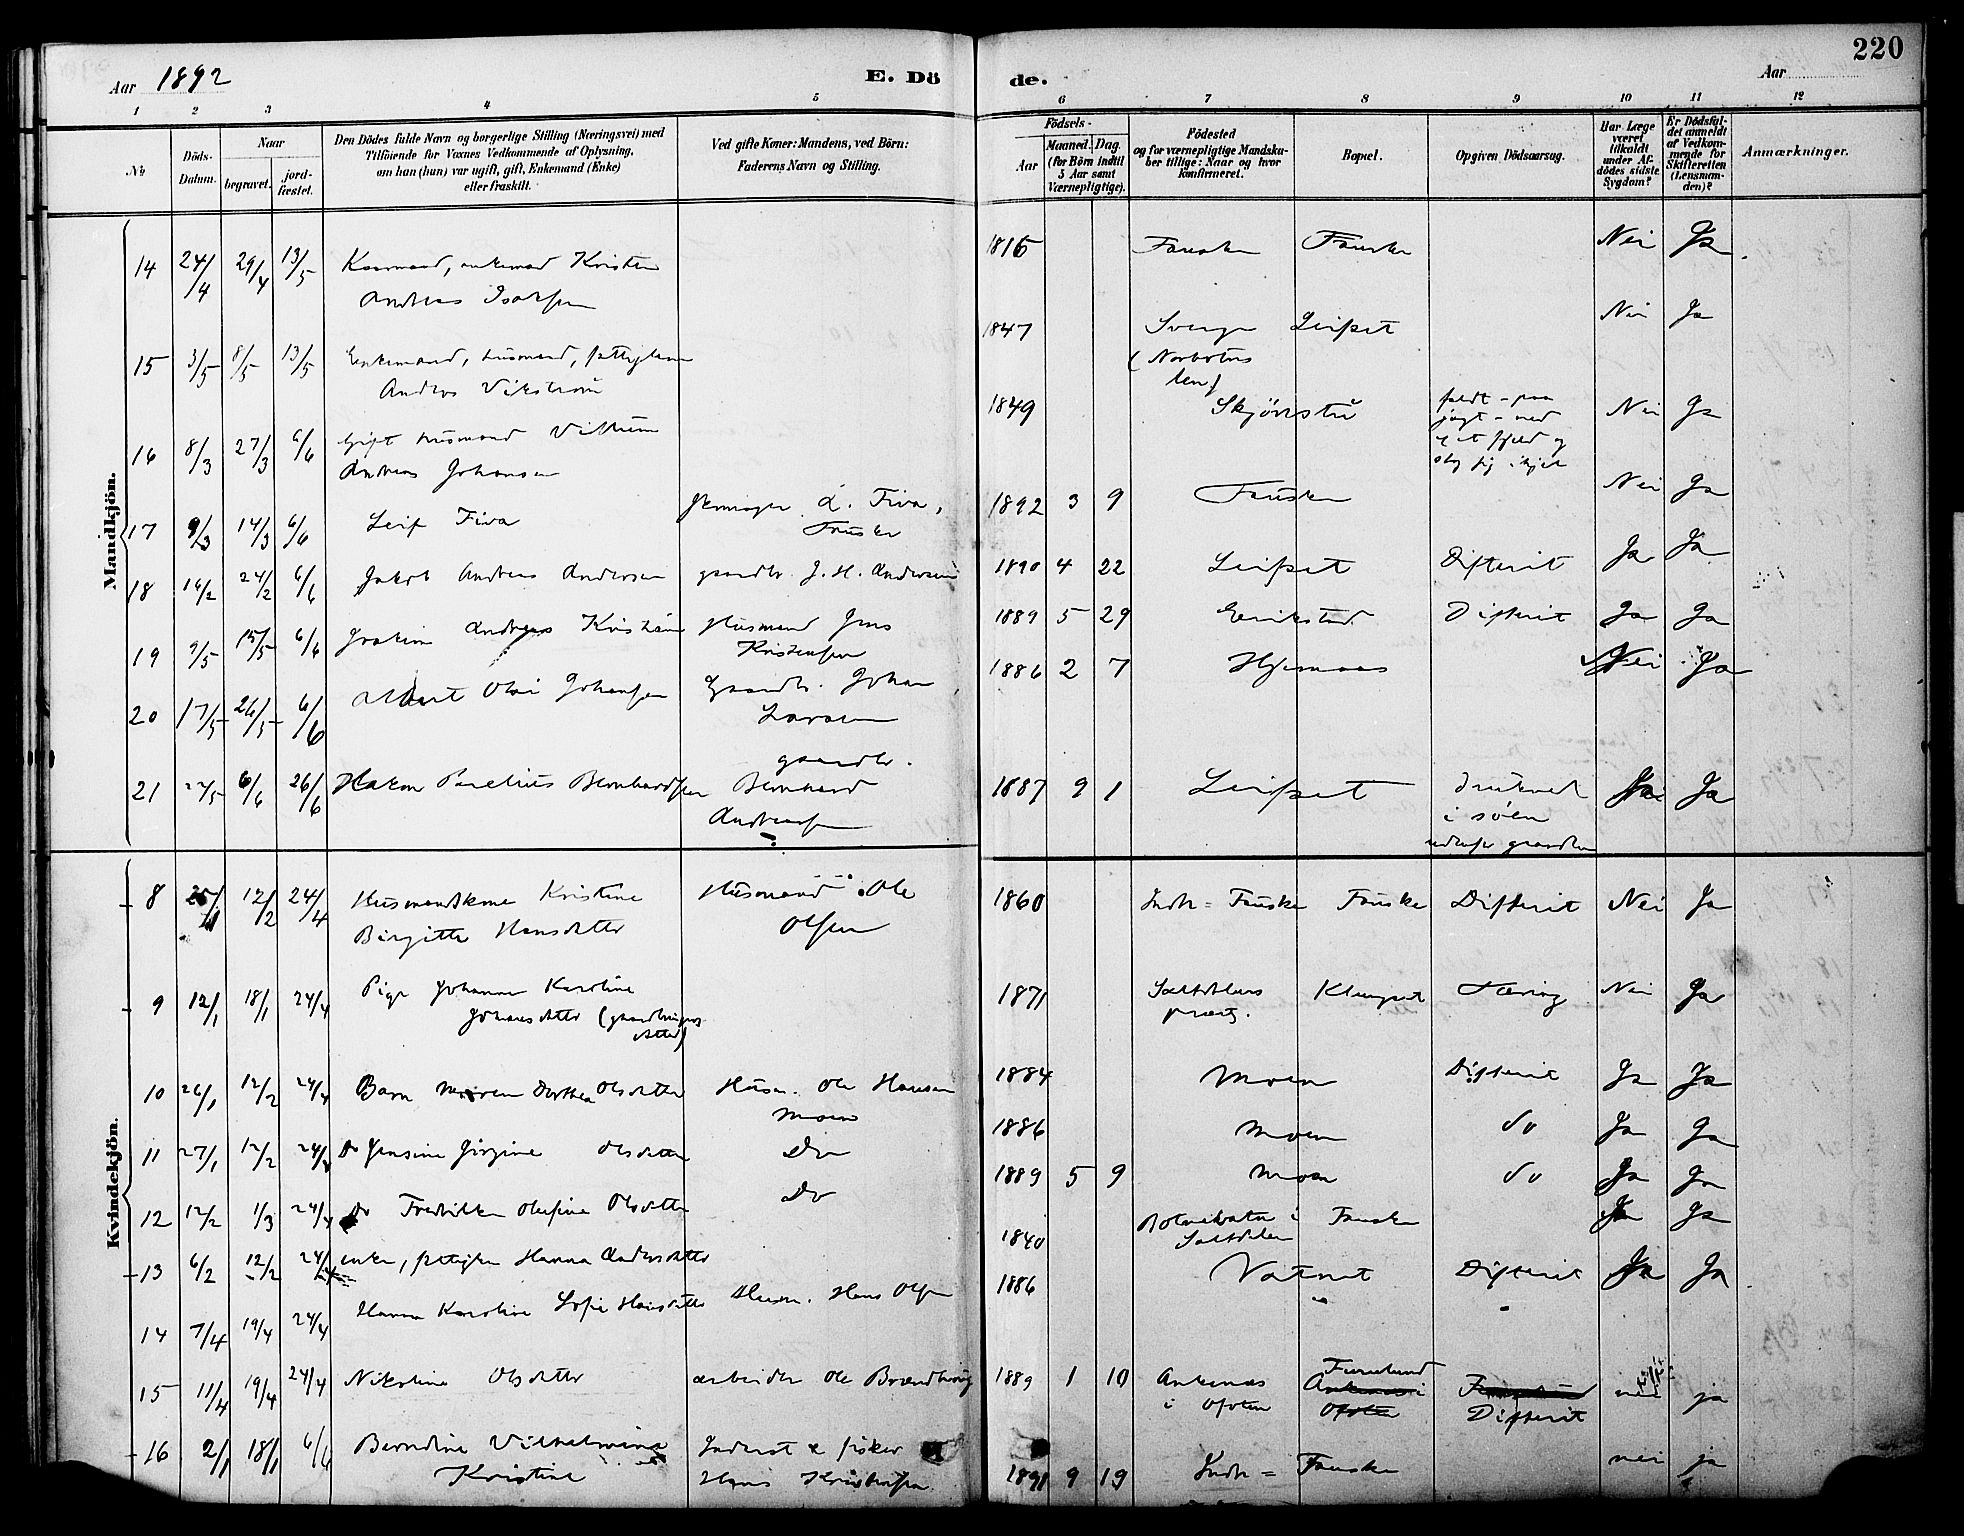 220
Aar 1892
E. Dö
de.
Aar
1 2 3 4 5 6 7 8 9 10 11 12
№
Döds-
Datum.
Naar
begravet.
jord-
fæstet.
Den Dödes fulde Navn og borgerlige Stilling (Næringsvei) med
Tilföiende for Voxnes Vedkommende af Oplysning,
om han (hun) var ugift, gift, Enkemand (Enke)
eller fraskilt.
Ved gifte Koner: Mandens, ved Börn:
Faderens Navn og Stilling.
Födsels-
Aar
Maaned. Dag.
(for Börn indtil
5 Aar samt
Værnepligtige).
Födested
og for værnepligtige Mandska-
ber tillige: Naar og hvor
konfirmeret.
Bopæl.
Opgiven Dödsaarsag.
Har Læge
været
tilkaldt
under Af-
dödes sidste
Sygdom?
Er Dödsfal-
det anmeldt
af Vedkom-
mende for
Skifteretten
(Lensman-
den)?
Anmærkninger.
Mandkjön.
14 24/4 29/4 13/5 enkemand Kristen 1816 Fauske Fauske Nei Ja
Andreas Isaksen
15 3/5 8/5 13/5 Enkemand, husmand, Anders Vikström 1847 Sverge Leifset Nei Ja
16 8/3 27/3 6/6 Gift husmand Vilhelm 1849 Skjönstu Nei Ja
Andreas Johansen
faldt - paa
jagt - ned
17 9/3 14/3 6/6 Leif Fiva L. Fiva, 1892 3 9 Fauske Nei Ja
Fauske
18 16/2 24/2 6/6 Jakob Andreas Andersen gaardbr. J. H. Andersen 1890 4 22 Leifset Difterit Ja Ja
19 9/5 15/5 6/6 Joakim Andreas Kristian Husmand Jens 1889 5 29 Erikstad Difterit Ja Ja
Kristensen
20 17/5 26/5 6/6 Albert Olai Johansen Gaardbr. Johan 1886 2 7 Hjemaas Nei Ja
Larsen
21 6/6 26/6 Hakon Parelius Bernhardsen gaardbr. 1887 9 1 Leifset druknet Ja
Bernhard
Andreassen
i söen
Kvindekjön.
8 12/2 24/4 Husmandskone Kristine Husmand Ole 1860 Indr = Fauske Fauske Difterit Nei Ja
Birgitte Hansdatter Olsen
9 12/1 18/1 24/4 Pige Johanna Karoline 1871 Saltdalens Klungset Tæring Nei Ja
Johansdatter
præstg.
10 26/1 12/2 24/4 Barn Maren Dorthea Olsdatter Husm. Ole Hansen 1884 Moen Difterit Ja Ja
Moen
11 27/1 12/2 24/4 Do Jensine Jörgine Olsdatter Do 1886 Moen do Ja Ja
12 12/2 1/3 24/4 Do Fredrikke Olufine Olsdatter Do 1889 5 9 Moen do Ja Ja
13 6/2 12/2 24/4 enke, Hanna Andersdatter 1840 i Saltdalen Fauske Ja Ja
14 7/4 19/4 24/4 Hanna Karoline Sofie Hansdatter Husm. Hans Olsen 1886 Vatnet Difterit Ja Ja
15 11/4 19/4 24/4 Nikoline Olsdatter arbeider Ole 1889 1 10 Ankenæs Furulund nei ja
i Ofoten Ofoten Difterit
16 2/1 18/1 6/6 Berndine Vilhelmine Inderst & fisker 1891 9 19 Indr = Fauske nei ja
Kristine Hans Kristiansen